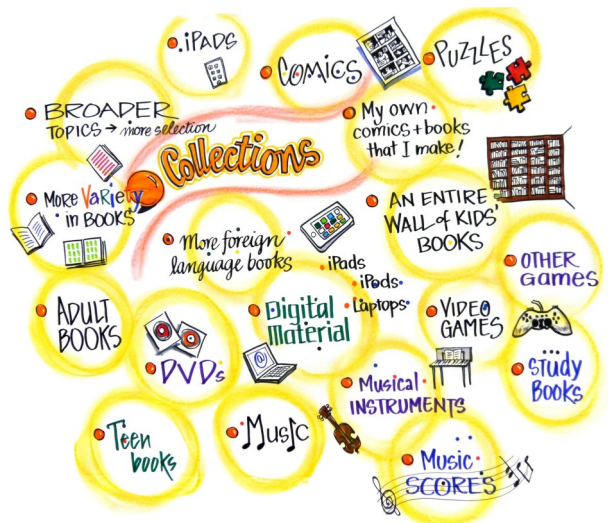 iPADS
COMICS
PUZZLES
BROADER
TOPICS → more selection
My own
comics + books
that I make!
Collections
More Variety
in BOOKS
AN ENTIRE
WALL of KIDS'
BOOKS
More foreign
language books
OTHER
Games
iPads
iPods
Laptops
ADULT
BOOKS
Digital
Material
VIDEO
GAMES
DVDs
@
STUDY
BOOKS
Musical
INSTRUMENTS
Teen
books
Music
Music
SCORES